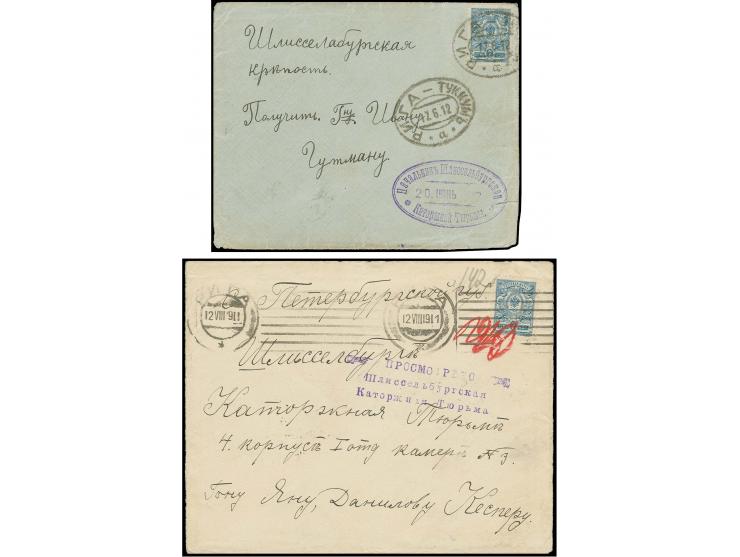 Шлисселабургская
крѣпость.
Получить. Гну Ивану
Гутману.
РИГА
РИГА — ТУККУМЪ
17.6.12
а
Начальникъ Шлиссельбургской
20. ІЮНЬ
Каторжной Тюрьмы
142
Петербургской губ
РИГА
12 VIII 1911
12 VIII 1911
Шлыссельбургъ
ПРОСМОТРѢНО
Шлиссельбургская
Каторжная Тюрьма
Каторжная Тюрьмѣ
4. корпусъ I отд камеръ № 3.
Гону Яну, Данилову Кесперу.